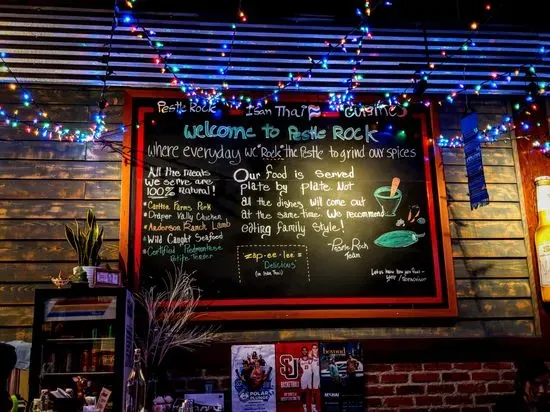 Pestle Rock Isan Thai Cuisine
Welcome to Pestle Rock
where everyday we "Rock" the Pestle to grind our spices
All the meats
we serve are
100% natural!
• Carlton Farms Pork
• Draper Vally Chicken
• Anderson Ranch Lamb
• Wild Caught Seafood
• Certified Piedmontese
Petite Tender
Our food is served
plate by plate. Not
all the dishes will come out
at the same time. We recommend
eating Family Style!
- Pestle Rock
Team
zap • ee • lee =
Delicious
(in Isan Thai)
Let us know how you feel -
POLAR
SU
BASKETBALL
beyond